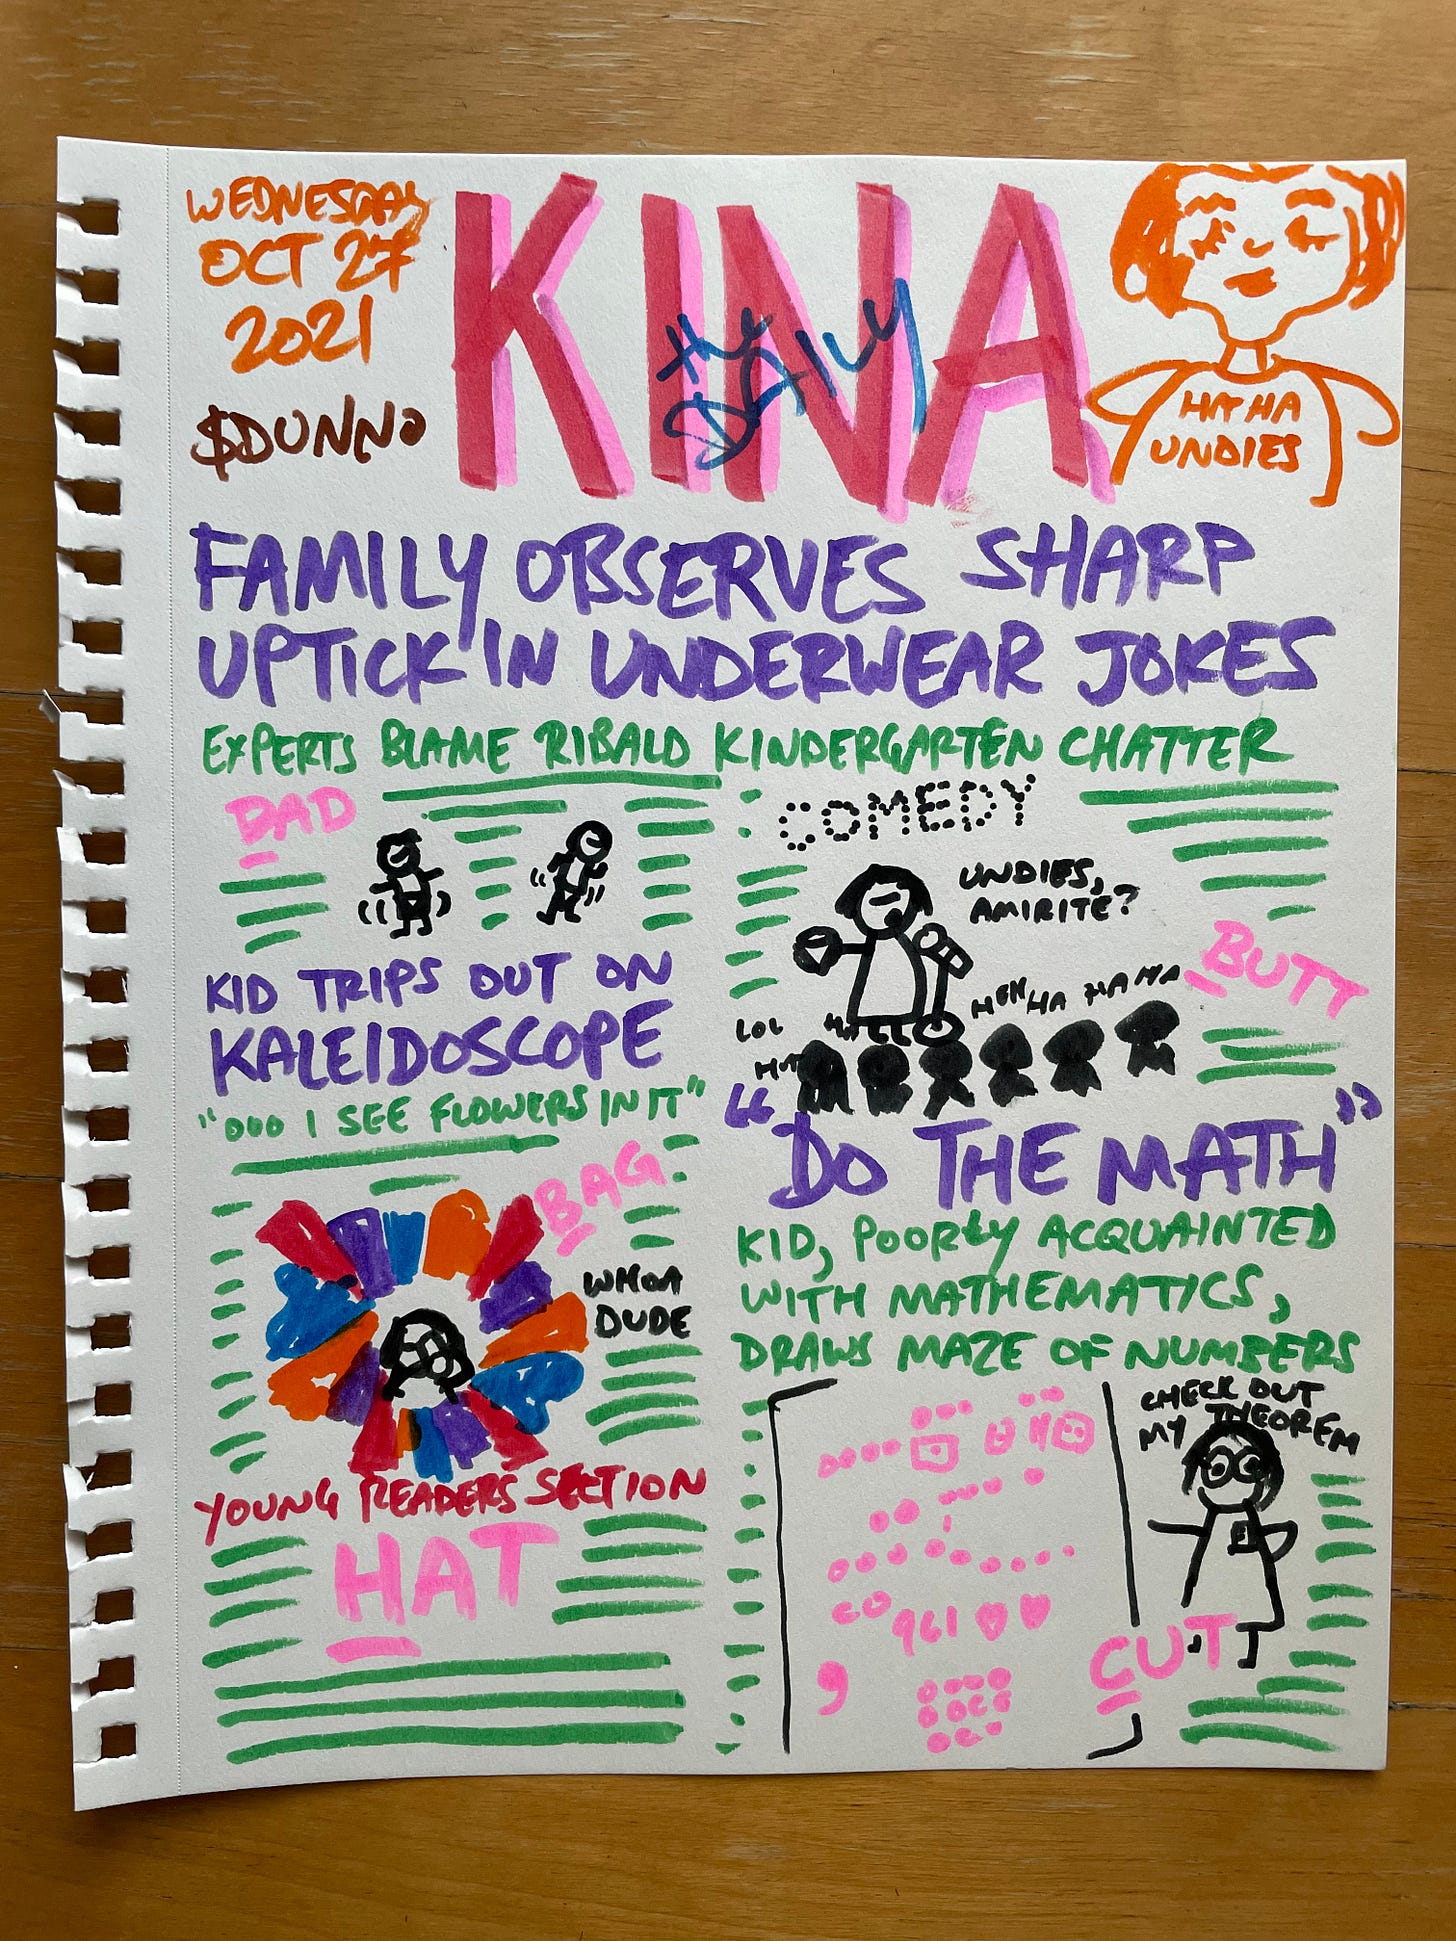 WEDNESDAY
OCT 27
2021
$DUNNO
THE DAILY
KINA
HA HA
UNDIES
FAMILY OBSERVES SHARP
UPTICK IN UNDERWEAR JOKES
EXPERTS BLAME RIBALD KINDERGARTEN CHATTER
DAD
KID TRIPS OUT ON
KALEIDOSCOPE
"OOO I SEE FLOWERS IN IT"
BAG
WHOA
DUDE
YOUNG READERS SECTION
HAT
COMEDY
UNDIES,
AMIRITE?
BUTT
LOL
HA
HEH HA HA HA
"DO THE MATH"
KID, POORLY ACQUAINTED
WITH MATHEMATICS,
DRAWS MAZE OF NUMBERS
CHECK OUT
MY THEOREM
961
CUT